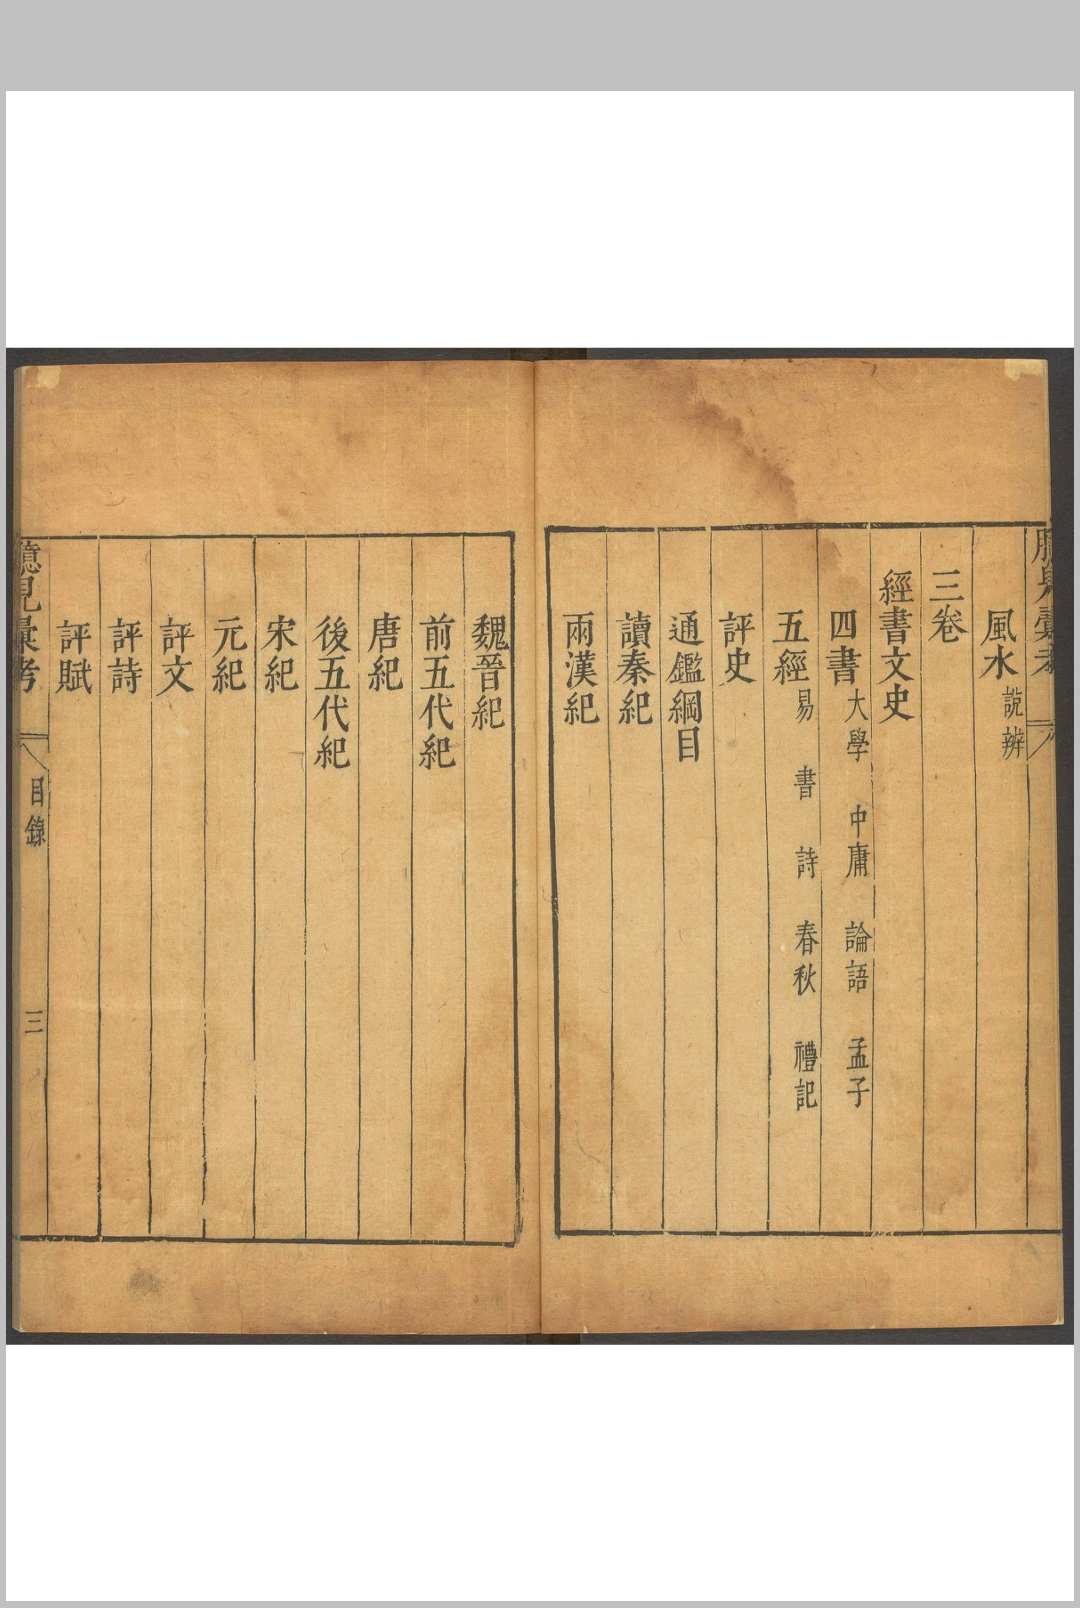 臆見彙考
風水 說辨
三卷
經書文史
四書 大學 中庸 論語 孟子
五經 易 書 詩 春秋 禮記
評史
通鑑綱目
讀秦紀
兩漢紀
魏晉紀
前五代紀
唐紀
後五代紀
宋紀
元紀
評文
評詩
評賦
臆見彙考 目錄 三